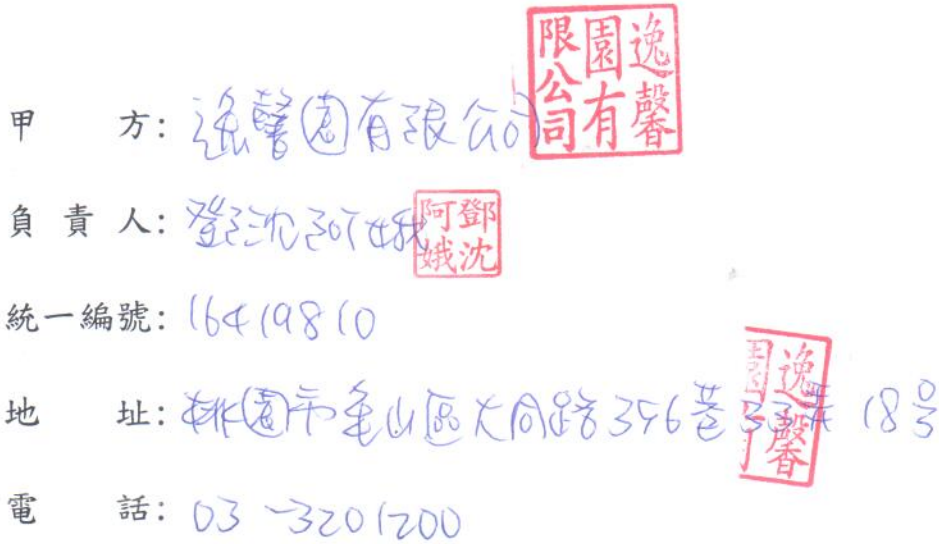 甲方：逸馨園有限公司
逸馨園有限公司
負責人：鄧沈阿娥
鄧沈阿娥
統一編號：16419810
地址：桃園市龜山區大同路396巷33弄18号
逸馨園有
電話：03-3201200